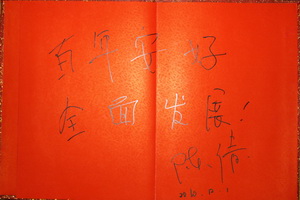 百年好
全面发展!
陈倩